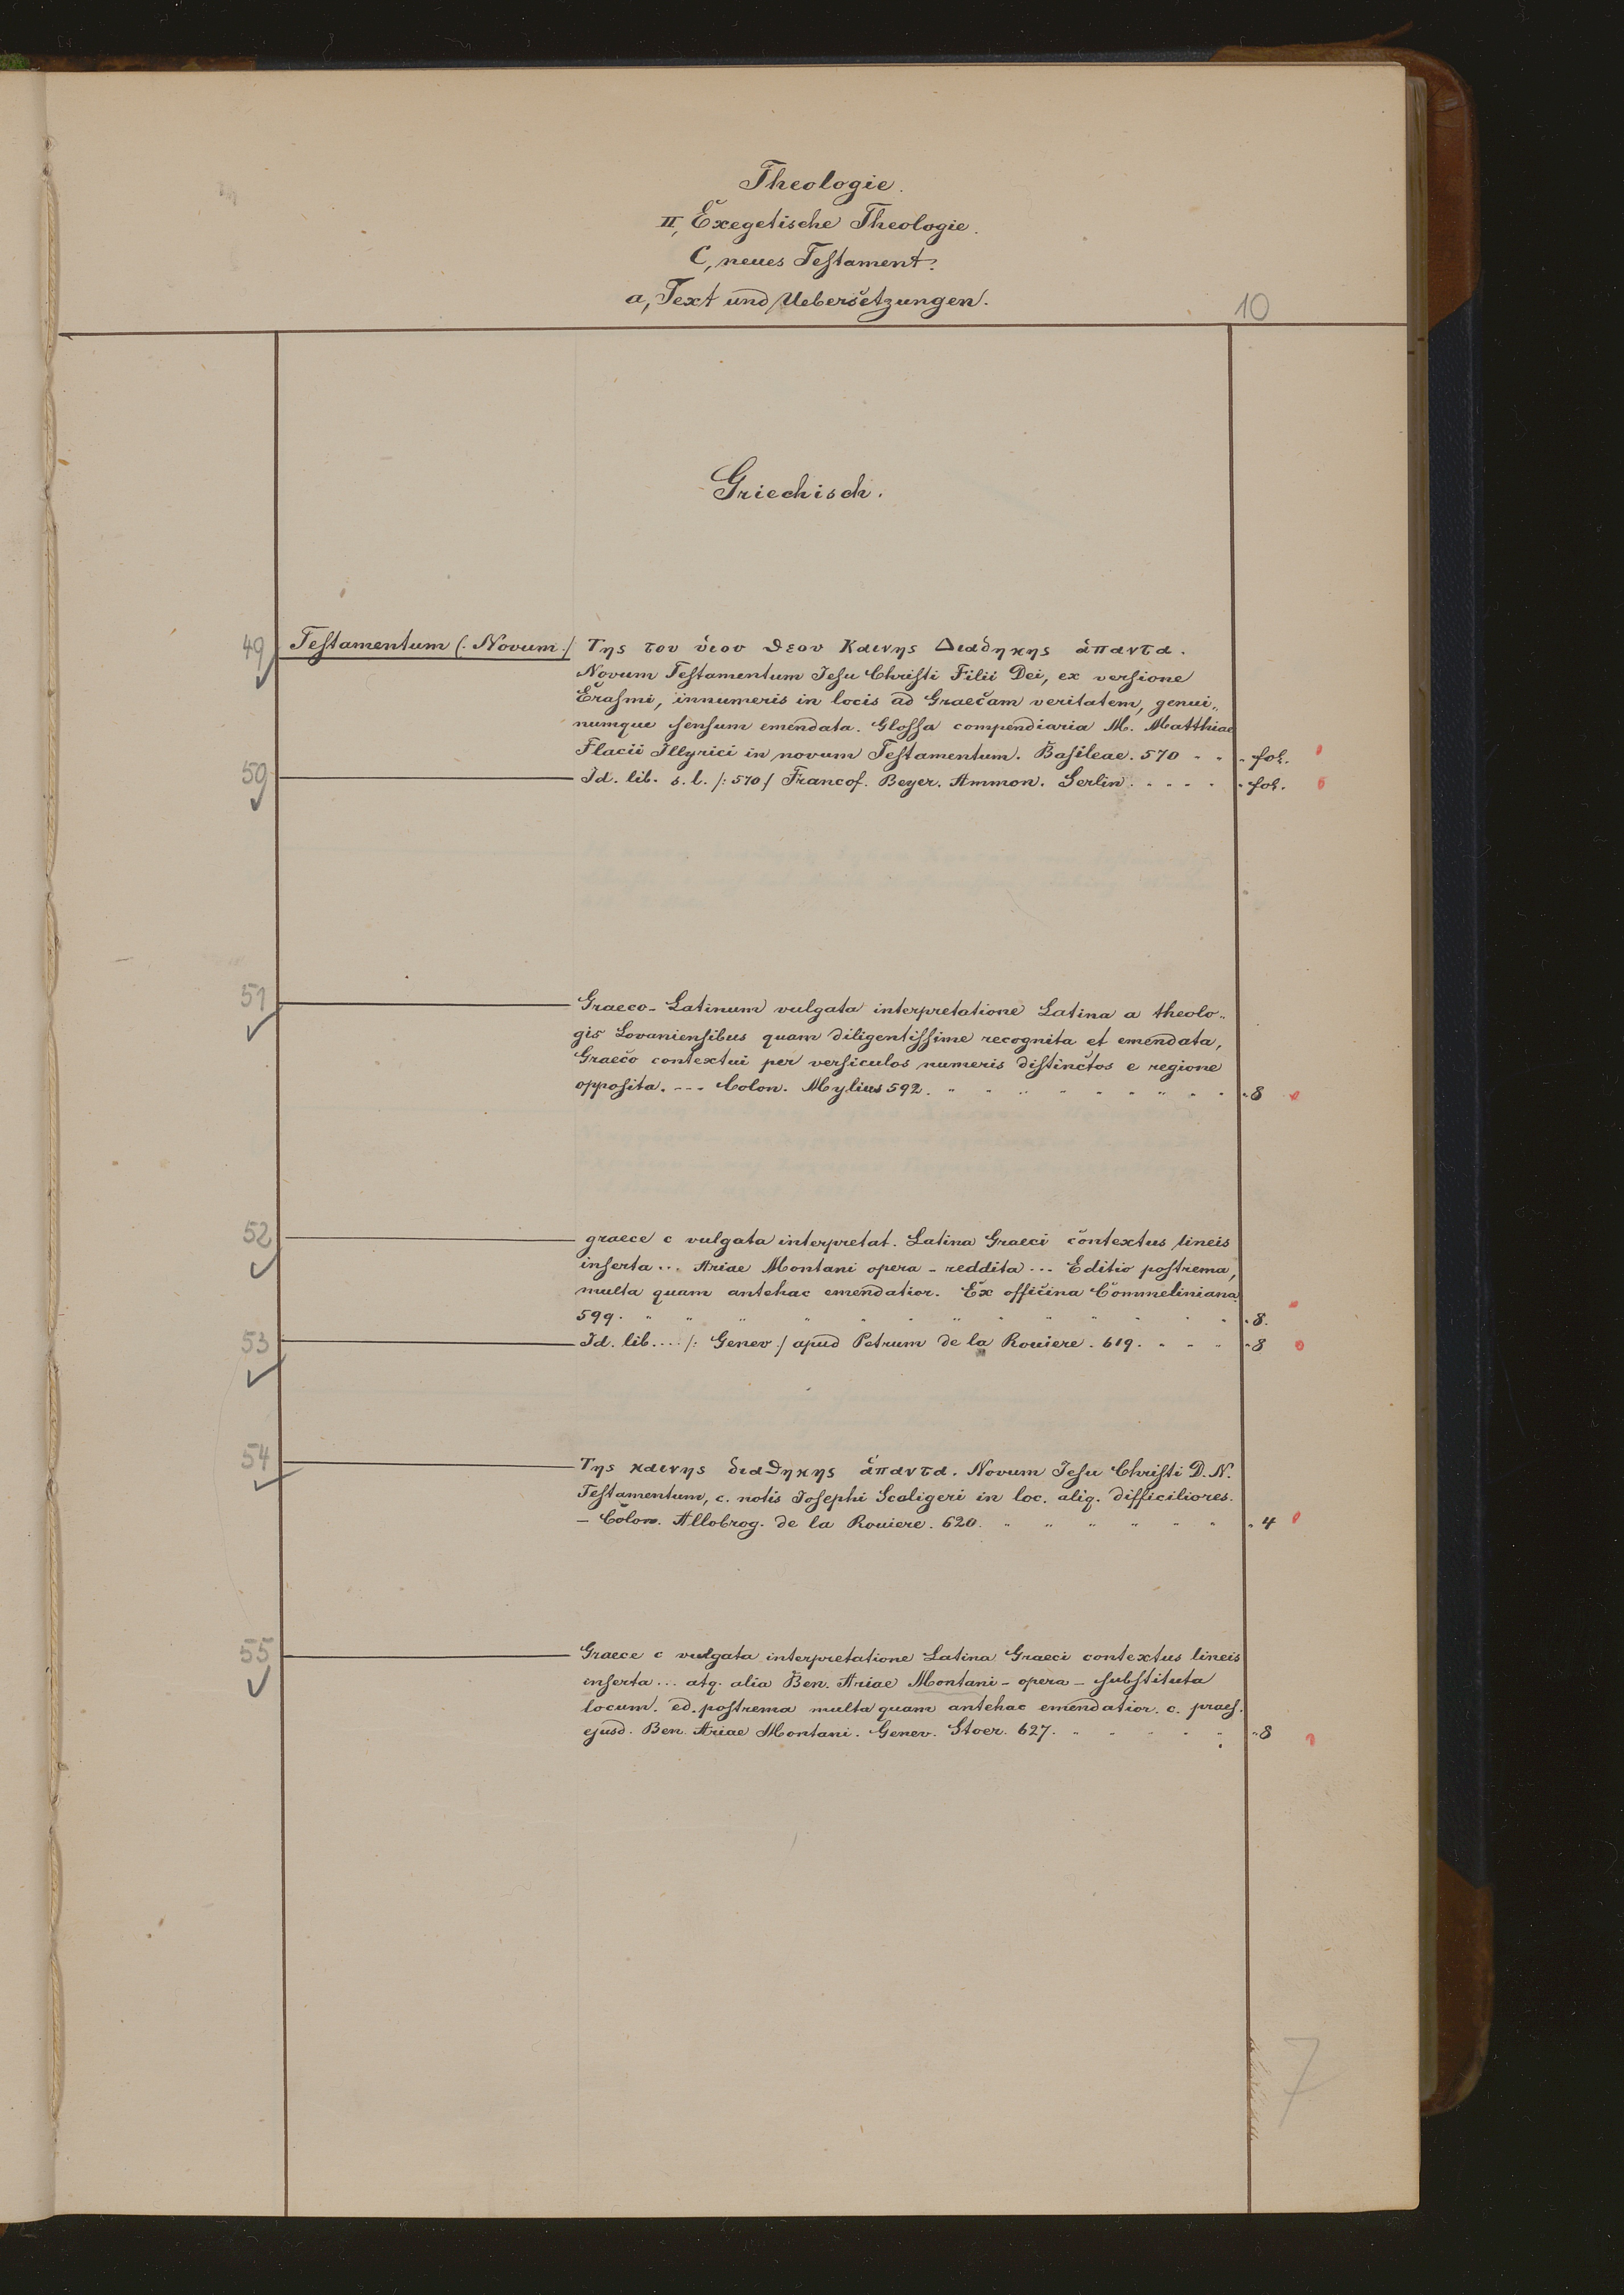 Theologie.
II, Exegetische Theologie.
C, neues Testament.
a, Text und Uebersetzungen.
10
Griechisch.
49 Testamentum (: Novum :) Της του ὑιου θεου Καινης Διαθηκης ἁπαντα.
Novum Testamentum Jesu Christi Filii Dei, ex versione
Erasmi, innumeris in locis ad Graecam veritatem, genui„
numque sensum emendata. Glossa compendiaria M. Matthiae
Flacii Illyrici in novum Testamentum. Basileae. 570 - - - fol.
50 Id. lib. s. l. /: 570 / Francof. Beyer. Ammon. Serlin. . . . . fol.
51 Graeco-Latinum vulgata interpretatione Latina a theolo„
gis Lovaniensibus quam diligentissime recognita et emendata,
Graeco contextui per versiculos numeris distinctos e regione
opposita. --- Colon. Mylius 592. - 8
52 graece c vulgata interpretat. Latina Graeci contextus lineis
inserta ... Ariae Montani opera - reddita ... Editio postrema,
multa quam antehac emendatior. Ex officina Commeliniana.
599. - 8.
53 Id. lib. ... /: Genev :/ apud Petrum de la Rouiere. 619. - - - 8
54 Της καινης διαθηκης ἁπαντα. Novum Jesu Christi D. N.
Testamentum, c. notis Josephi Scaligeri in loc. aliq. difficiliores.
- Colon. Allobrog. de la Rouiere. 620. - 4
55 Graece c vulgata interpretatione Latina Graeci contextus lineis
inserta ... atq. alia Ben. Ariae Montani - opera - substituta
locum. ed. postrema multa quam antehac emendatior. c. praef.
ejusd. Ben. Ariae Montani. Genev. Stoer. 627. - 8
7